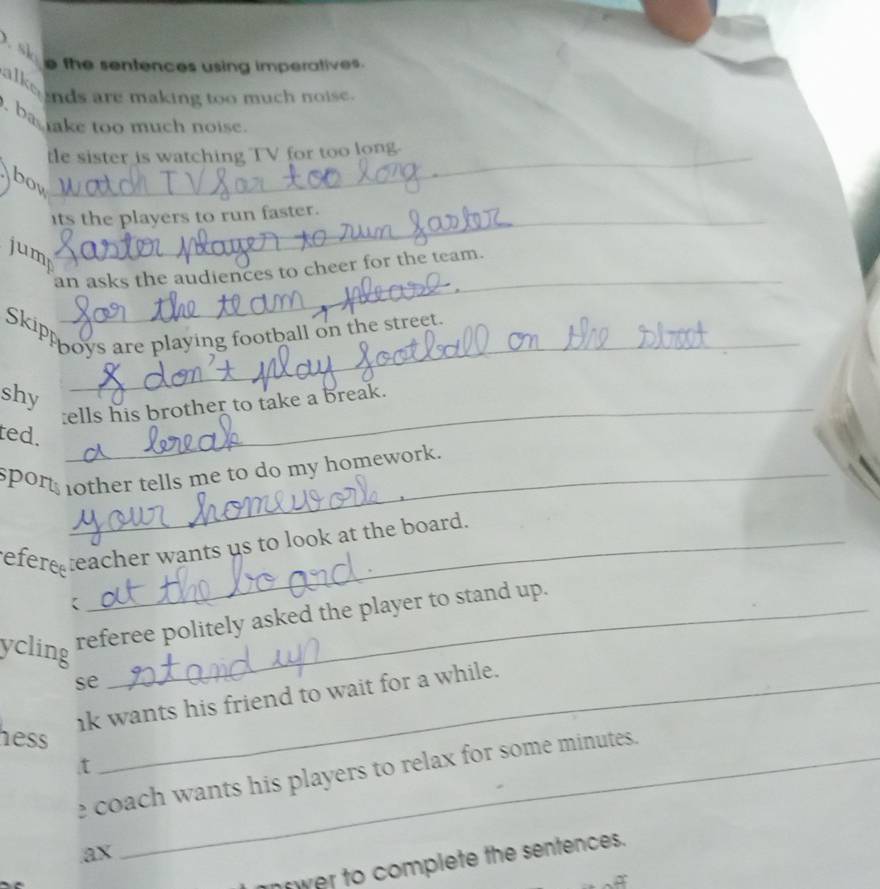 e the sentences using imperatives.
nds are making too much noise.
ake too much noise.
tle sister is watching TV for too long.
watch TV for too long.
its the players to run faster.
faster player to run faster
an asks the audiences to cheer for the team.
for the team, please.
boys are playing football on the street.
don't play football on the street
tells his brother to take a break.
a break
nother tells me to do my homework.
your homework.
teacher wants us to look at the board.
k at the board.
referee politely asked the player to stand up.
se stand up
nk wants his friend to wait for a while.
t
e coach wants his players to relax for some minutes.
ax
answer to complete the sentences.
bow
jump
Skipp
shy
ted.
sports
referee
ycling
hess